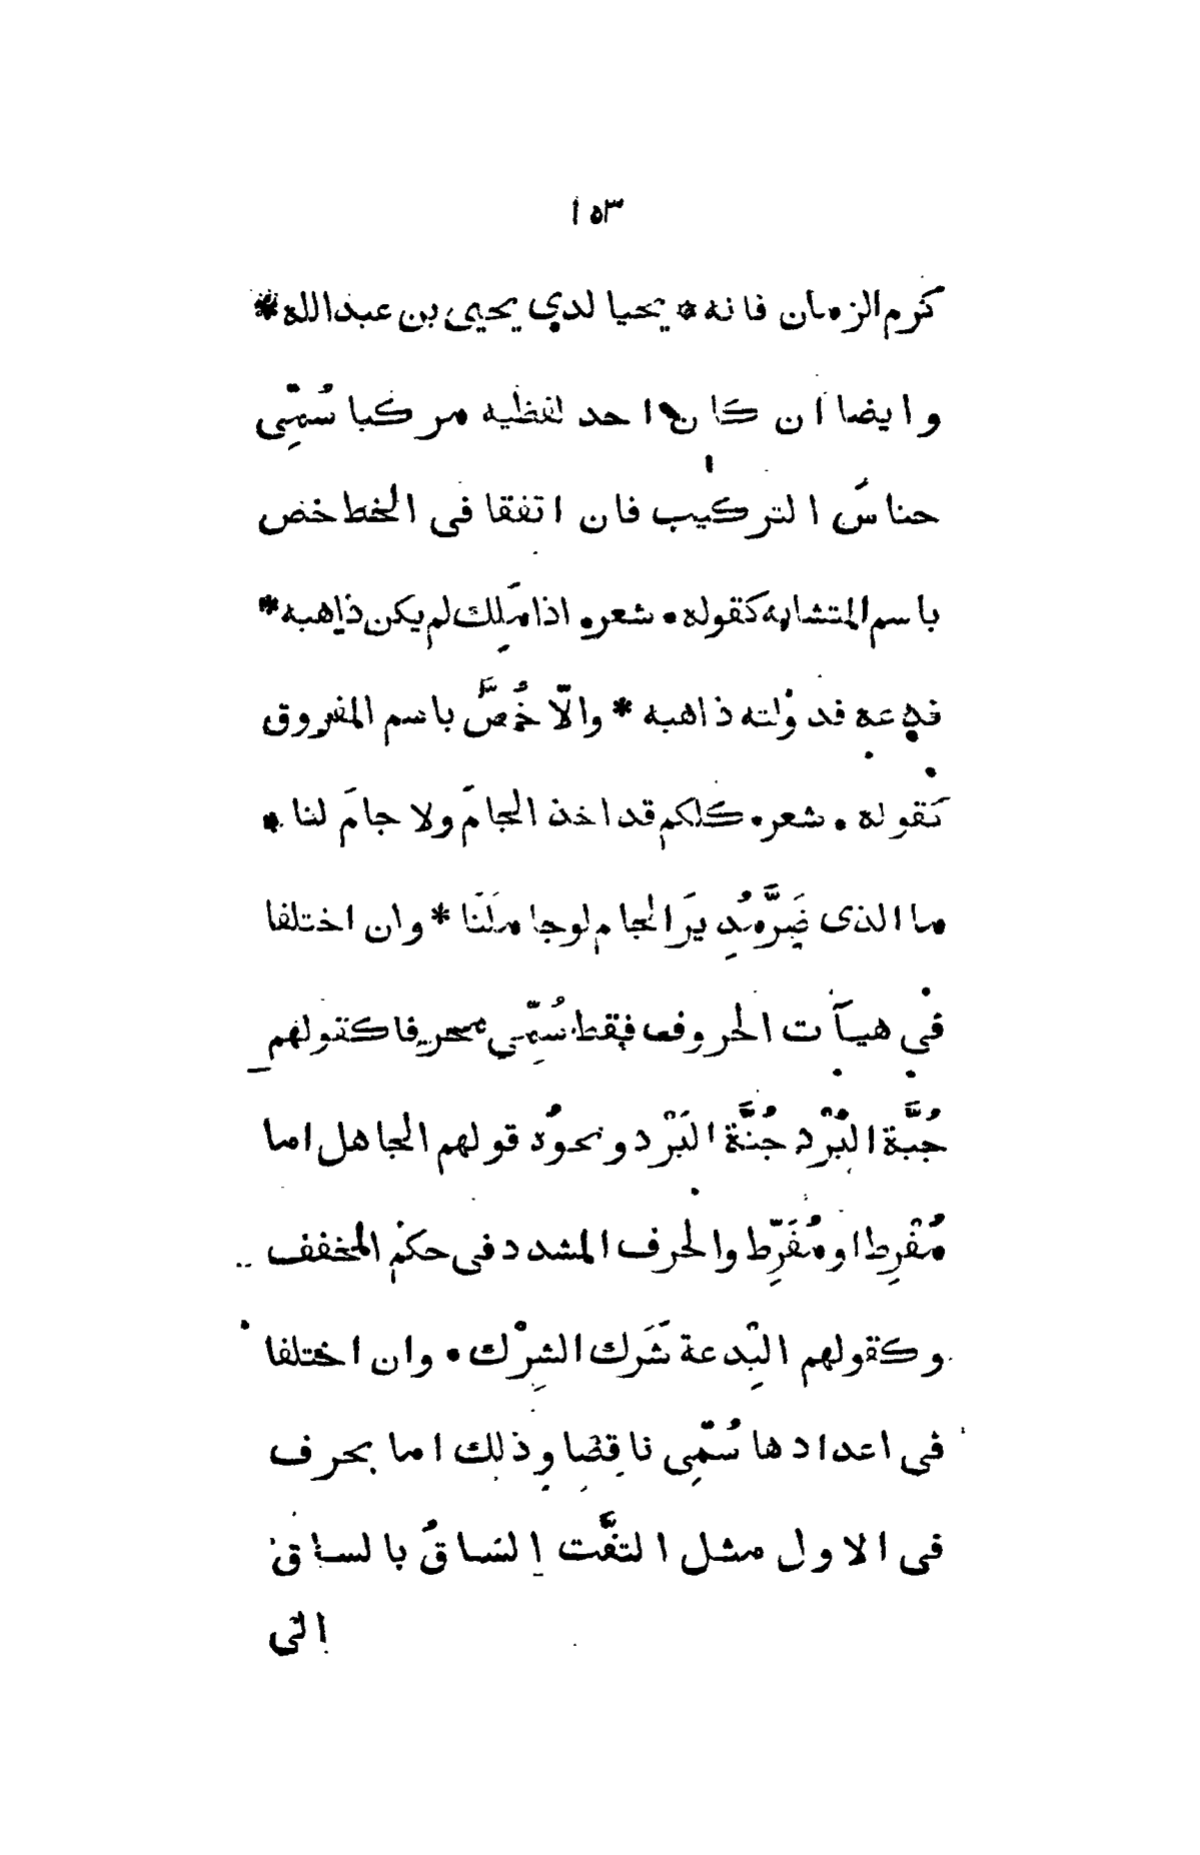 ١٥٣
كرم الزمان فانه * يحيا لدي يحيى بن عبدالله *
وايضا ان كان احد لفظيه مركبا سُمّي
جناسَ التركيب فان اتفقا فى الخط خص
باسم المتشابه كقوله • شعر • اذا مَلِك لم يكن ذاهبه *
فدعه فدوْلته ذاهبه * والّا خُصَّ باسم المفروق
كقوله • شعر • كلكم قد اخذ الجامَ ولا جامَ لنا *
ما الذى ضَرَّ مُدِيرَ الجام لوجامَلَنَا * وان اختلفا
في هيآت الحروف فقط سُمّي محرفا كقولهم
جُبَّة البُرْد جُنَّة البَرْد ونحوُه قولهم الجاهل اما
مُفْرِط او مُفَرِّط والحرف المشدد فى حكم المخفف
وكقولهم البِدعة شَرَك الشِرْك • وان اختلفا
فى اعدادها سُمّي ناقصا وذلك اما بحرف
فى الاول مثل التفَّت الساقُ بالساق
الى